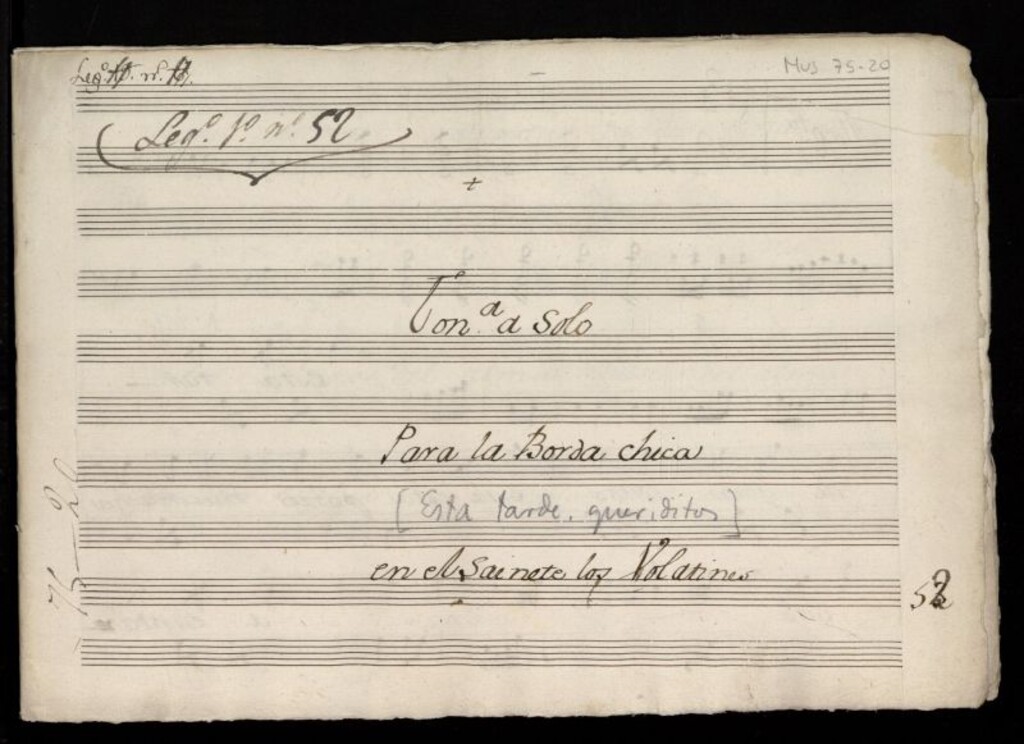 Leg.º nº.
Mus 75-20
Leg.º 1.º nº. 52
Ton.ª a Solo
Para la Borda chica
[Esta tarde, queriditos]
en el Sainete los Volatines
52